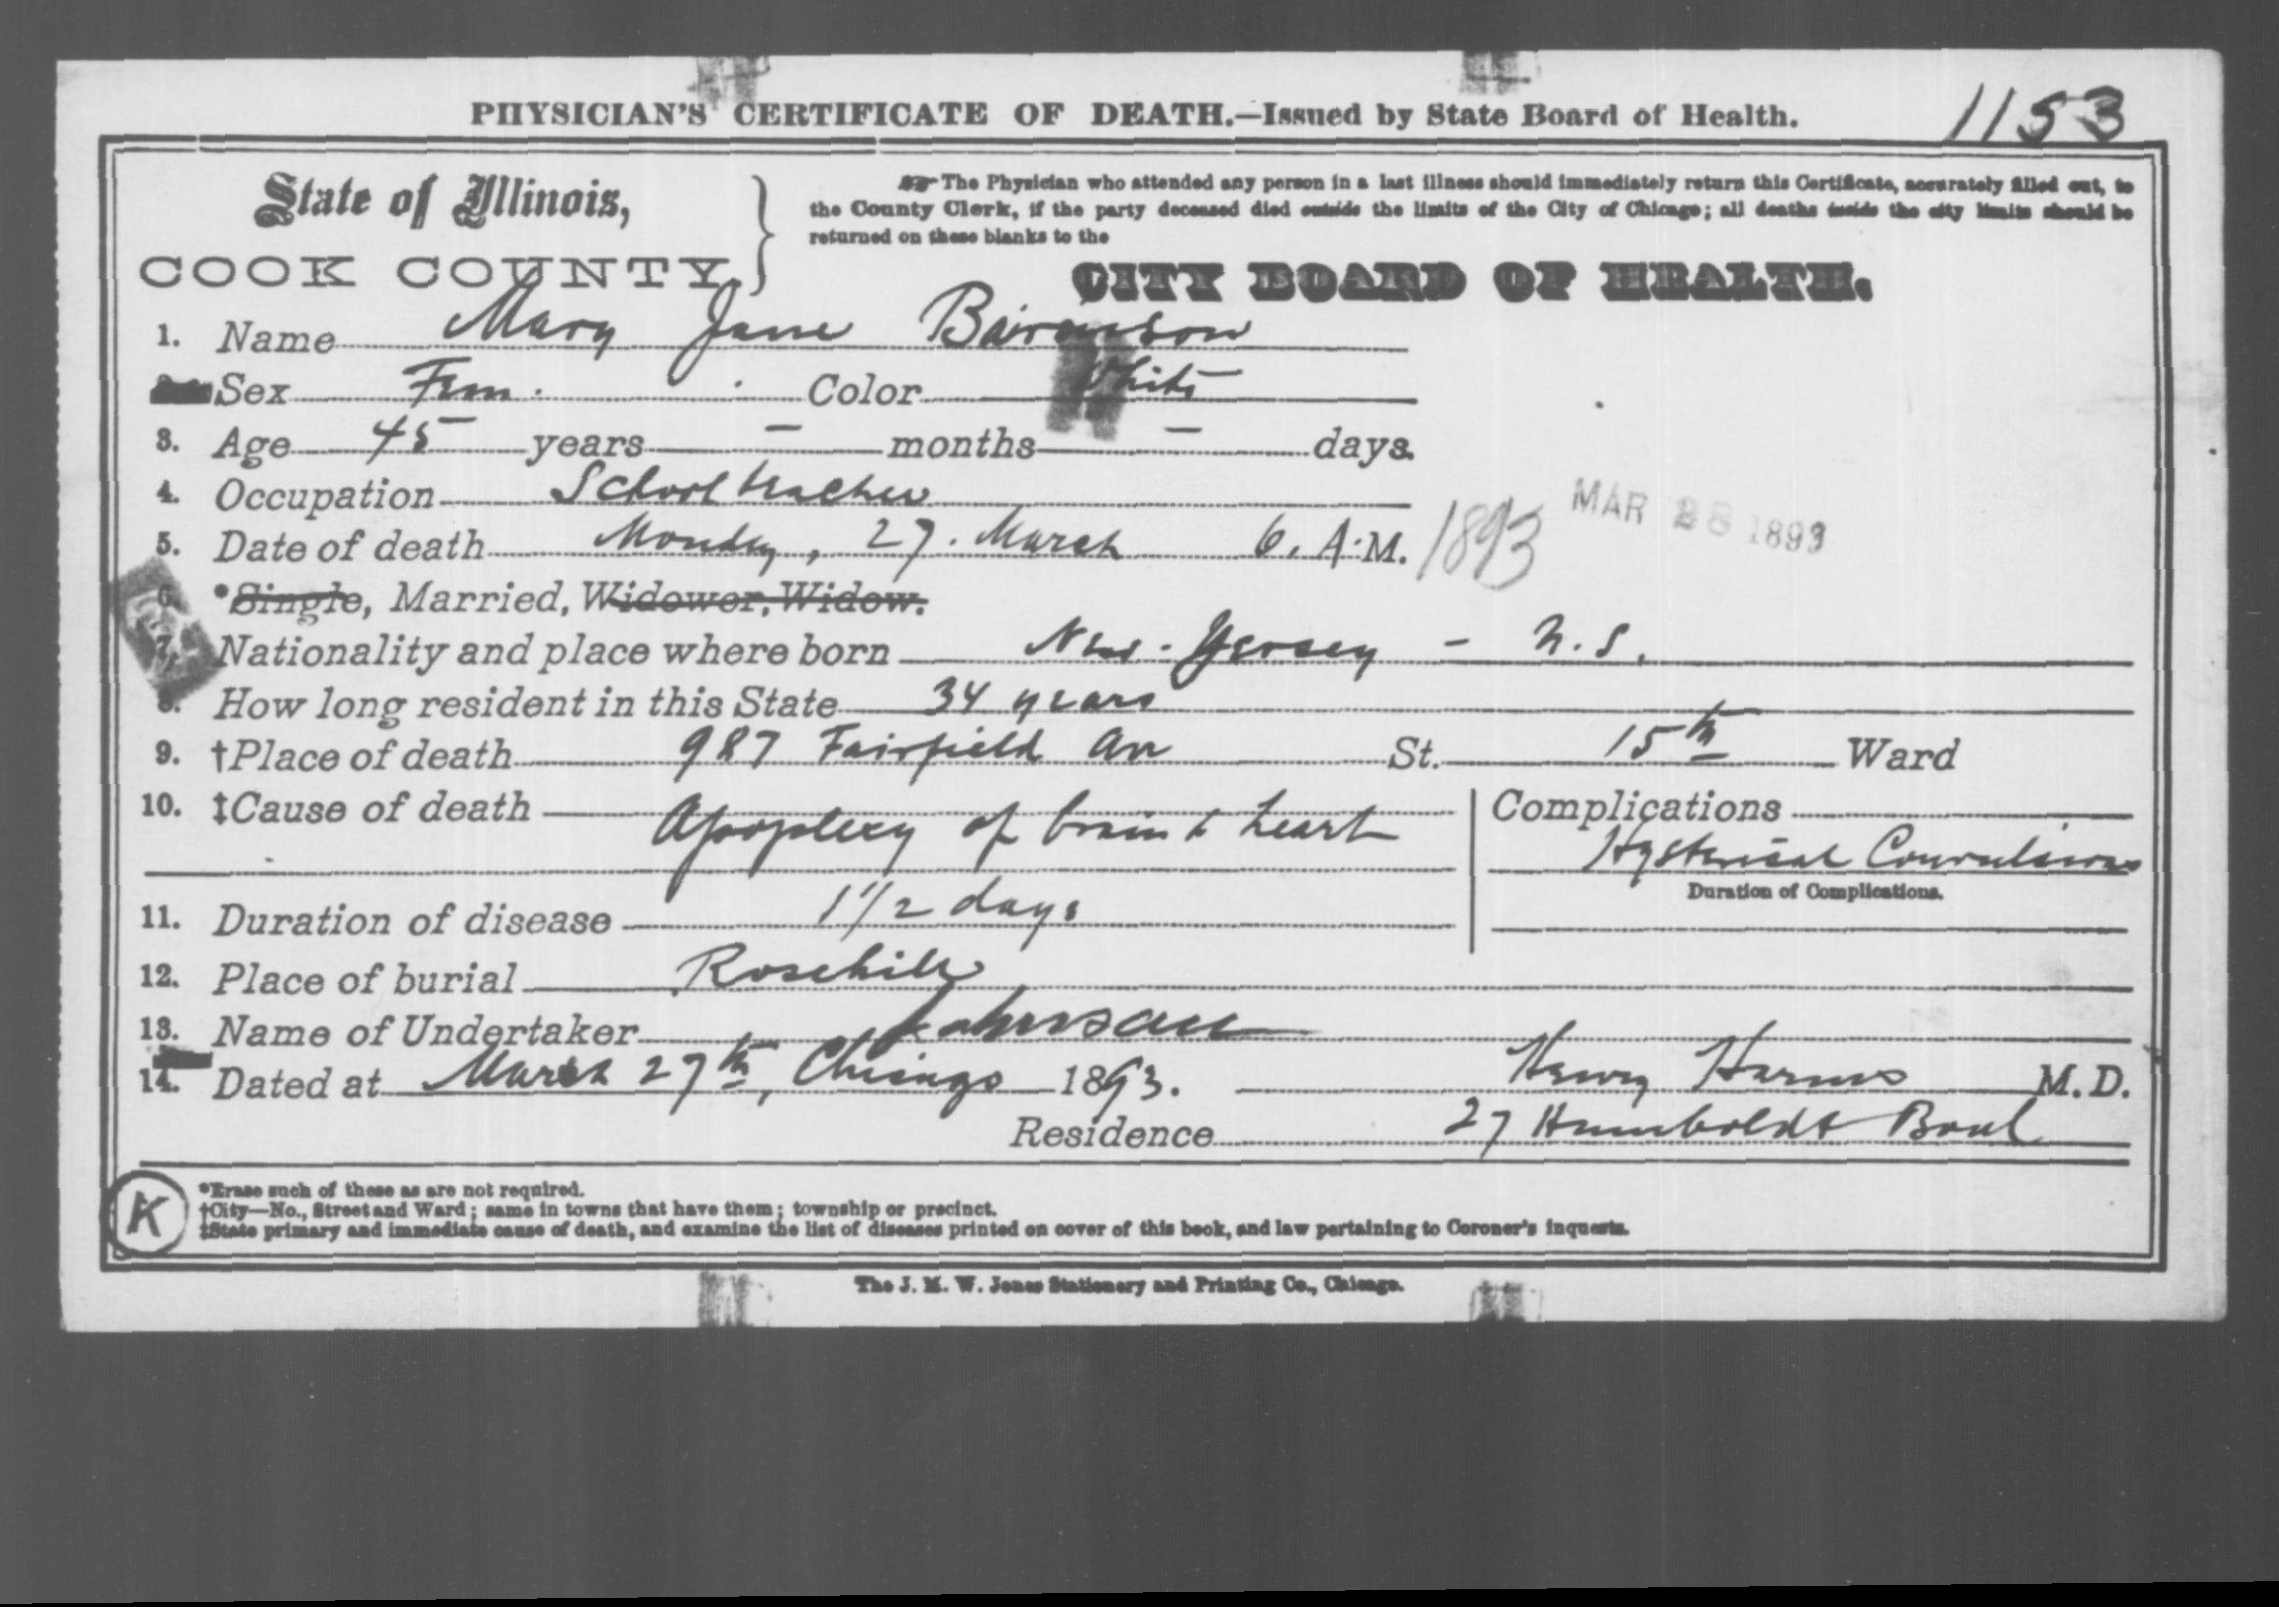 PHYSICIAN'S CERTIFICATE OF DEATH.—Issued by State Board of Health. 1153
State of Illinois,
COOK COUNTY,
The Physician who attended any person in a last illness should immediately return this Certificate, accurately filled out, to
the County Clerk, if the party deceased died outside the limits of the City of Chicago; all deaths inside the city limits should be
returned on these blanks to the
CITY BOARD OF HEALTH.
1. Name Mary Jane
Sex Fem. Color White
3. Age 45 years – months – days.
4. Occupation School teacher
5. Date of death Monday, 27. March 6. A.M. 1893 MAR 28 1893
6. *Single, Married, Widower, Widow.
7. Nationality and place where born New-Jersey – U.S.
8. How long resident in this State 34 years
9. †Place of death 987 Fairfield Av St. 15th Ward
10. ‡Cause of death Apoplexy of brain & heart
Complications Hysterical Convulsions
Duration of Complications.
11. Duration of disease 1 1/2 days
12. Place of burial Rosehill
13. Name of Undertaker
14. Dated at March 27th, Chicago 1893. Henry Harms M.D.
Residence 27 Humboldt Boul
K
*Erase such of these as are not required.
†City—No., Street and Ward; same in towns that have them; township or precinct.
‡State primary and immediate cause of death, and examine the list of diseases printed on cover of this book, and law pertaining to Coroner's inquests.
The J. M. W. Jones Stationery and Printing Co., Chicago.